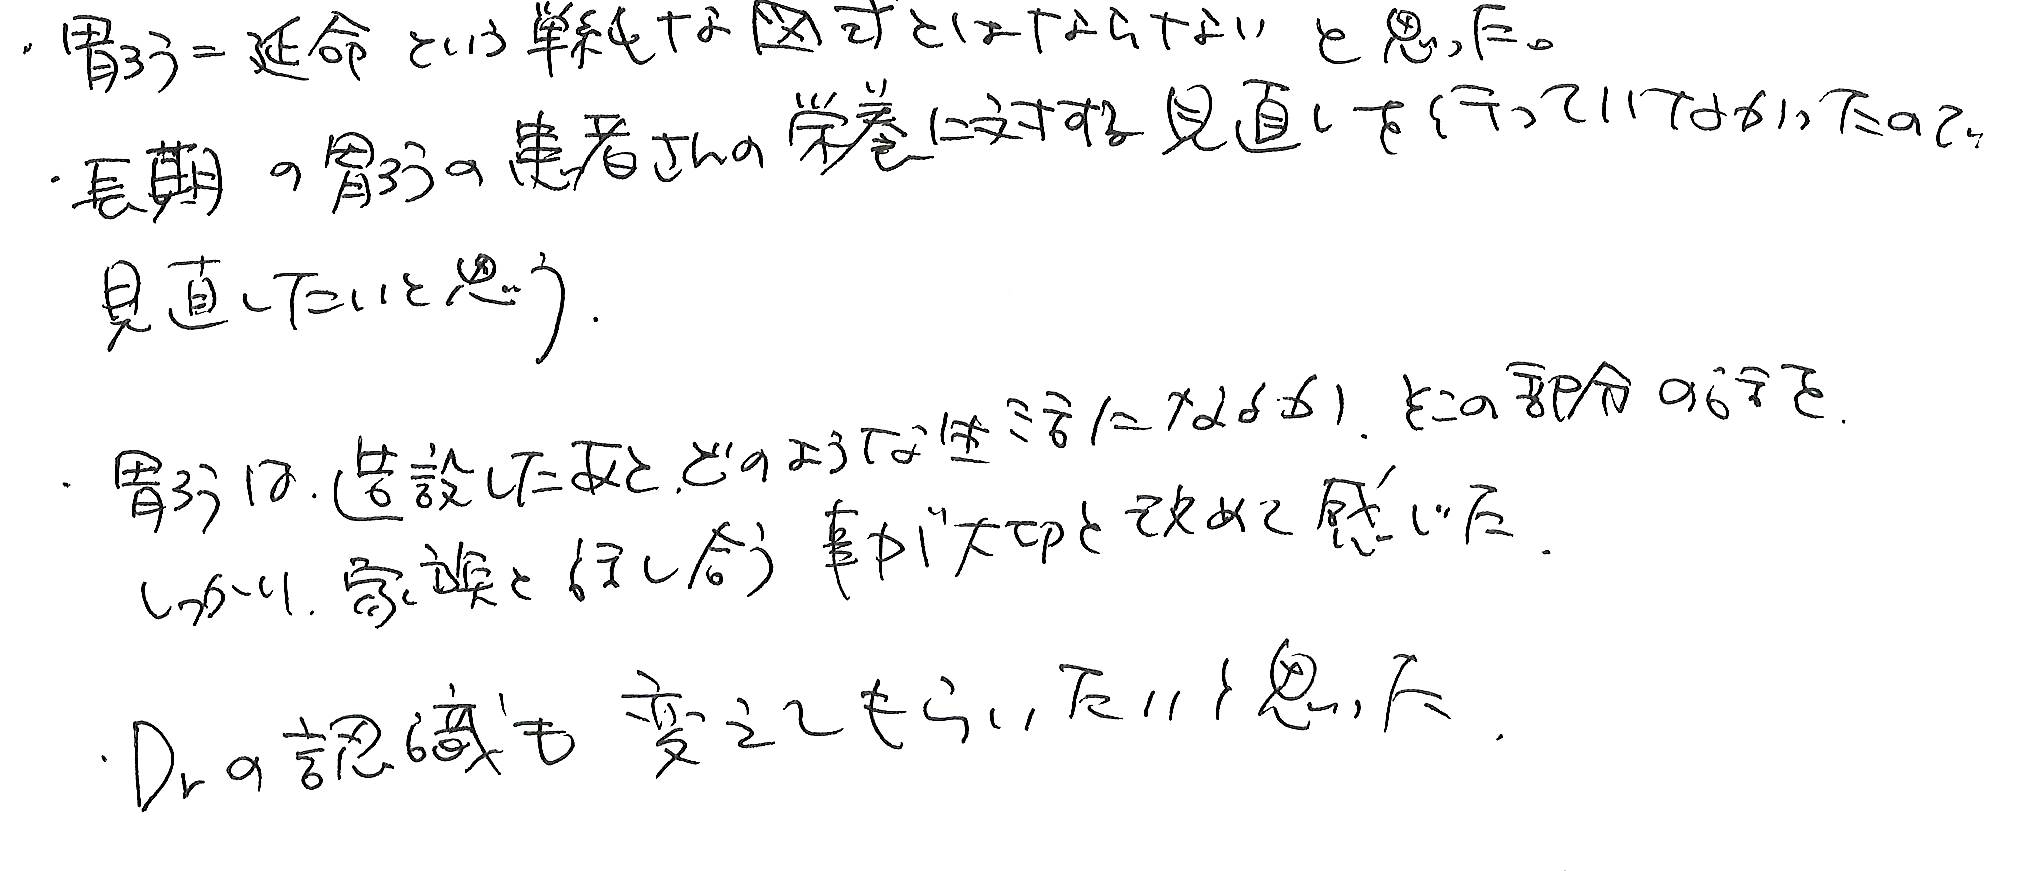 ・胃ろう=延命という単純な図式とはならないと思った。
・長期の胃ろうの患者さんの栄養に対する見直しを行っていなかったので、
見直したいと思う.
・胃ろうは、造設したあと、どのような生活になるか、そこの部分の話を.
しっかり、家族と話し合う事が大切と改めて感じた.
・Drの認識も変えてもらいたいと思った.